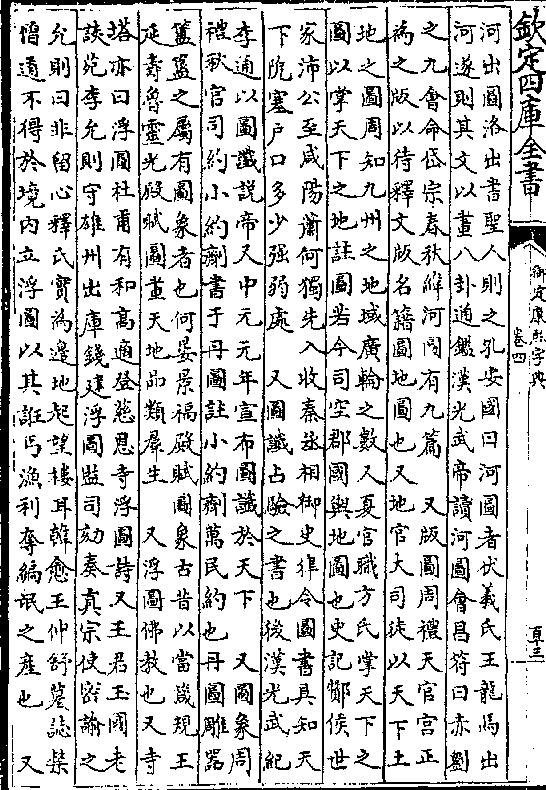 欽定四庫全書
御定康熙字典
卷四
河出圖洛出書聖人則之孔安國曰河圖者伏羲氏王龍馬出
河遂則其文以畫八卦通鑑漢光武帝讀河圖會昌符曰赤劉
之九會命岱宗春秋緯河圖有九篇 又版圖周禮天官宮正
為之版以待釋文版名籍圖地圖也又地官大司徒以天下土
地之圖周知九州之地域廣輪之數又夏官職方氏掌天下之
圖以掌天下之地註圖若今司空郡國輿地圖也史記酇侯世
家沛公至咸陽蕭何獨先入收秦丞相御史律令圖書具知天
下阨塞戶口多少强弱處 又圖讖占驗之書也後漢光武紀
李通以圖讖説帝又中元元年宣布圖讖於天下 又圖象周
禮秋官司約小約劑書于丹圖註小約劑萬民約也丹圖雕器
簠簋之屬有圖象者也何晏景福殿賦圖象古昔以當箴規王
延壽魯靈光殿賦圖畫天地品類羣生 又浮圖佛教也又寺
塔亦曰浮圖杜甫有和高適登慈恩寺浮圖詩又王君玉國老
談苑李允則守雄州出庫錢建浮圖監司劾奏真宗使密諭之
允則曰非留心釋氏實為邊地起望樓耳韓愈王仲舒墓誌禁
僧道不得於境內立浮圖以其誑丐漁利奪編氓之產也 又